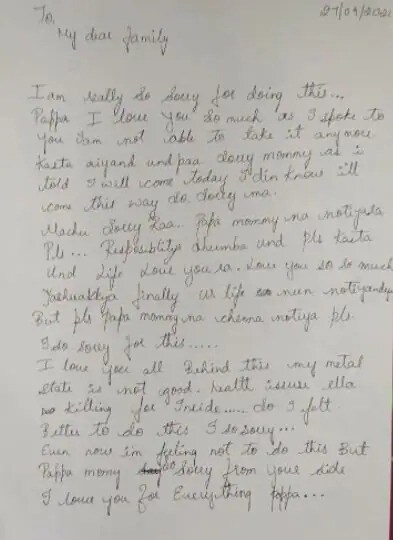 27/09/202
To,
My dear family
I am really so sorry for doing this...
Pappa I love you so much as I spoke to
you I am not able to take it anymore
Kasta aiyand undpaa sorry mommy as i
told I will come today I din know i'll
come this way do. Sorry ma.
Machu Sorry kaa.. Papa mommy na
Pls... dhumba und pls kasta
Und life love you ra. Love you so so much
finally ur life nun
But pls Papa mommy na chenna notiya pls.
I so sorry for this.....
I love you all Behind this my metal
state is not good. health issuse ella
killing for Inside..... So I felt
Better to do this I so sorry...
Even now i'm feeling not to do this But
Pappa momy so Sorry from your side
I love you for Everything Pappa...